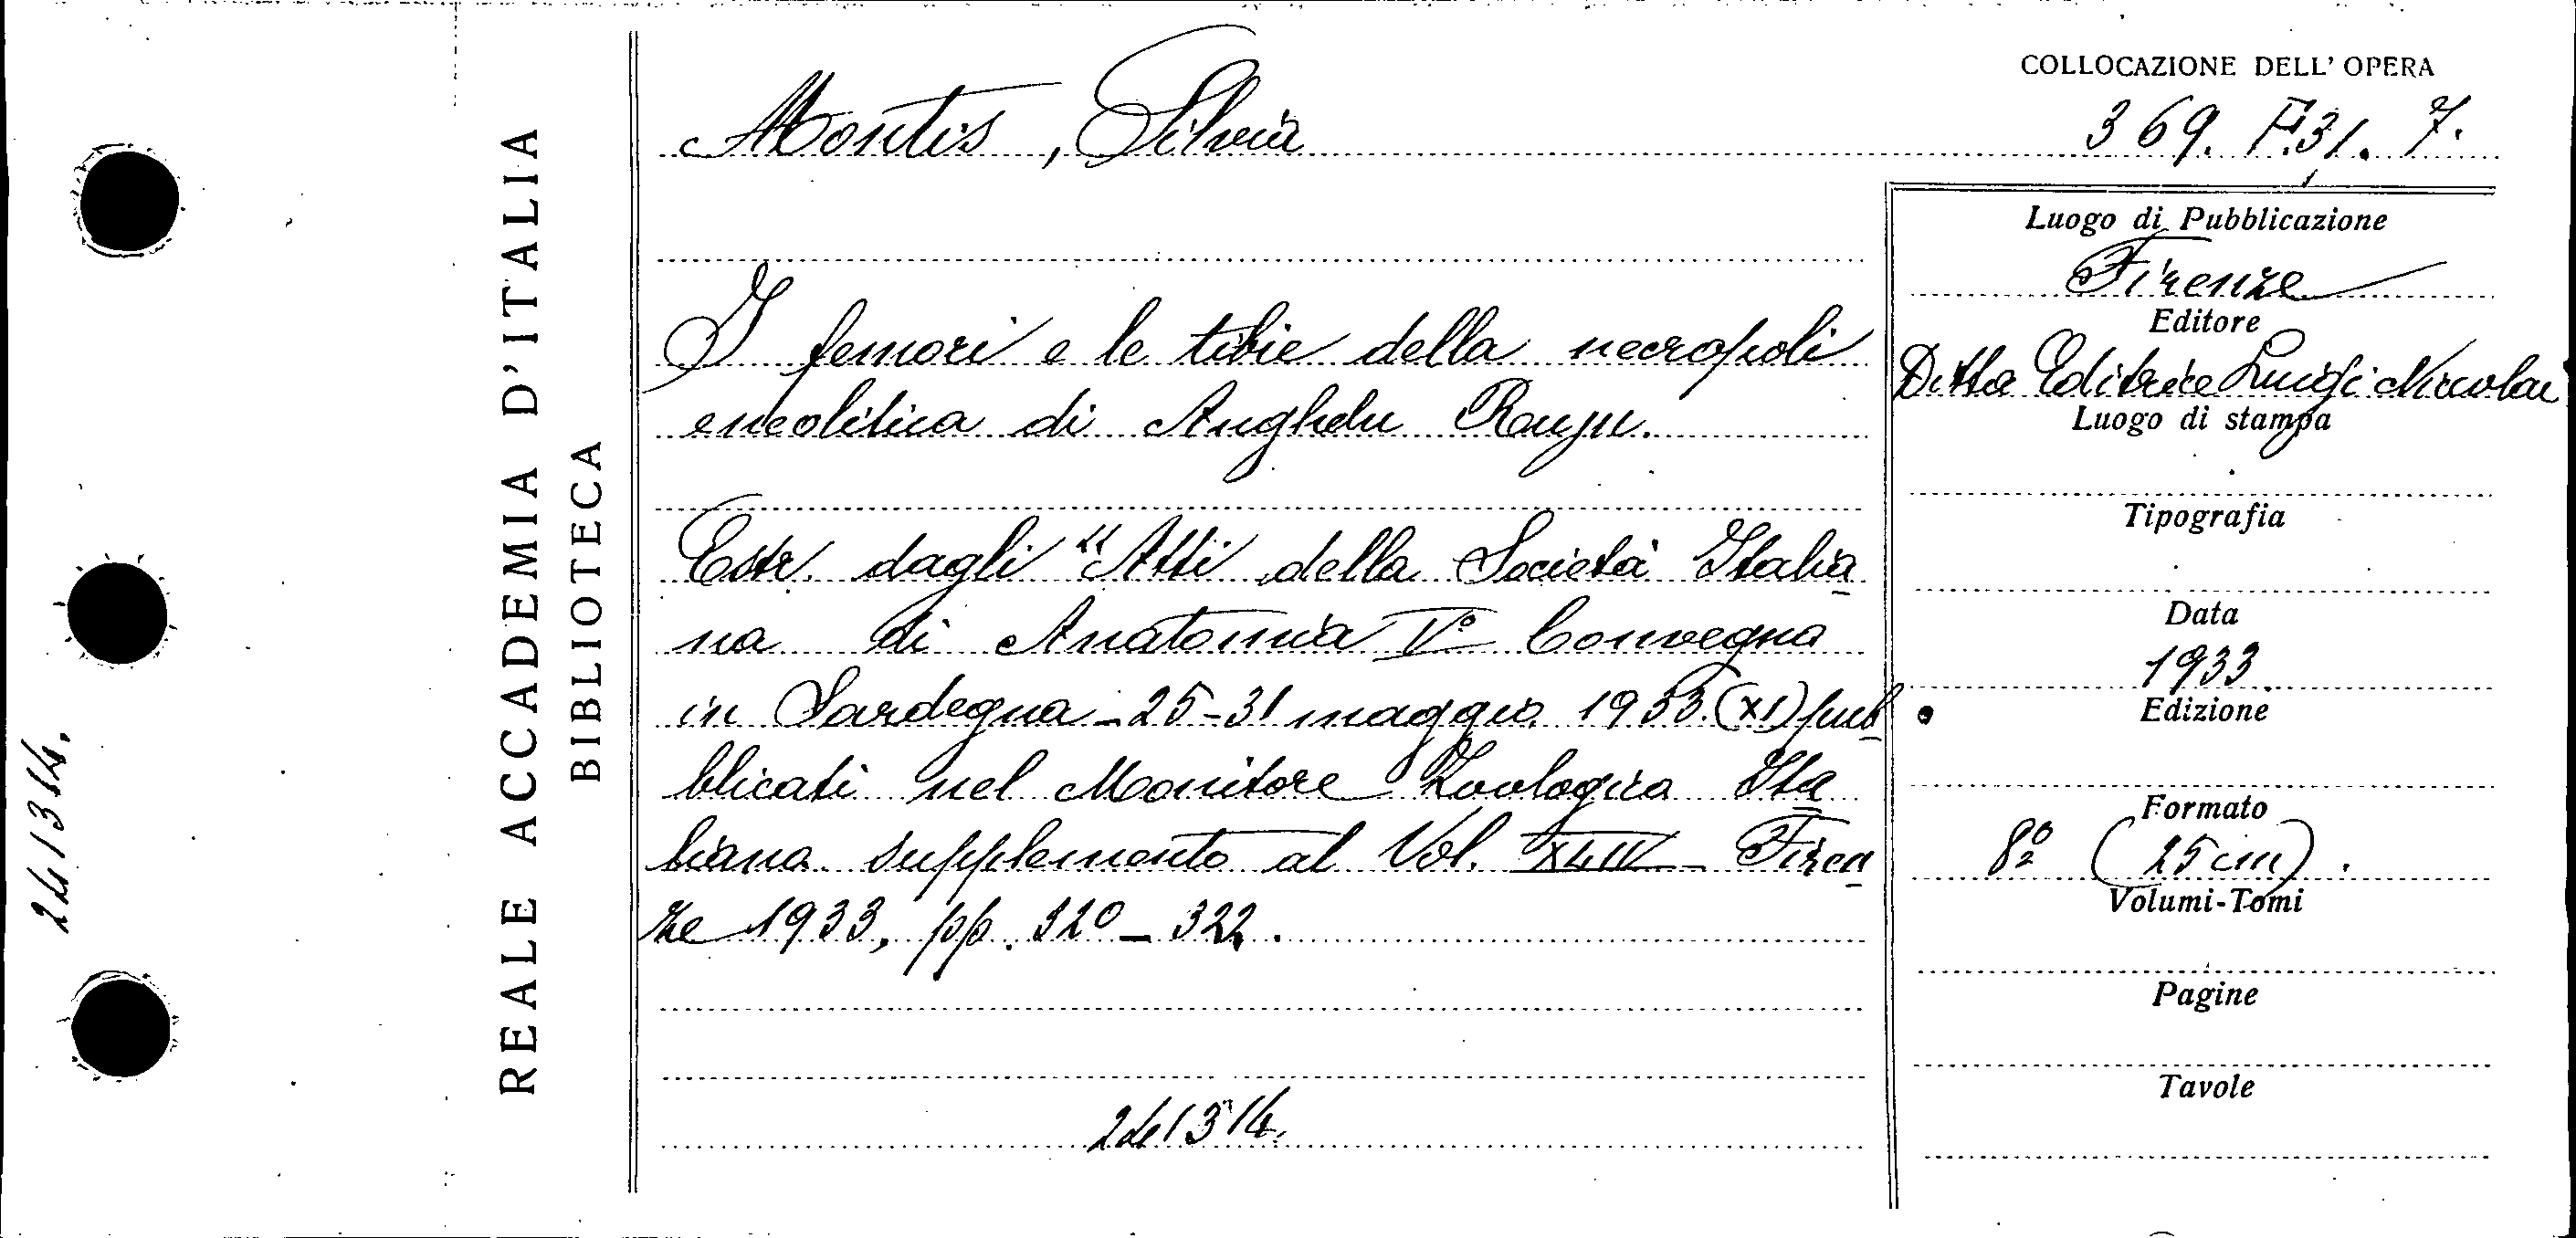 COLLOCAZIONE DELL' OPERA
369. F.31. 7.
Montis, Silvia
I femori e le tibie della necropoli
eneolitica di Anghelu Rouju.
Estr. dagli "Atti della Società Italia
na di Anatomia V° Convegno
in Sardegna - 25-31 maggio 1933 (XI) pub
blicati nel Monitore Zoologico Ita
liano supplemento al Vol. XLIV - Firen
ze 1933, pp. 320 - 322.
241314.
Luogo di Pubblicazione
Firenze
Editore
Ditta Editrice Luigi Niccolai
Luogo di stampa
Tipografia
Data
1933.
Edizione
Formato
8° (25 cm).
Volumi-Tomi
Pagine
Tavole
REALE ACCADEMIA D'ITALIA
BIBLIOTECA
241314.